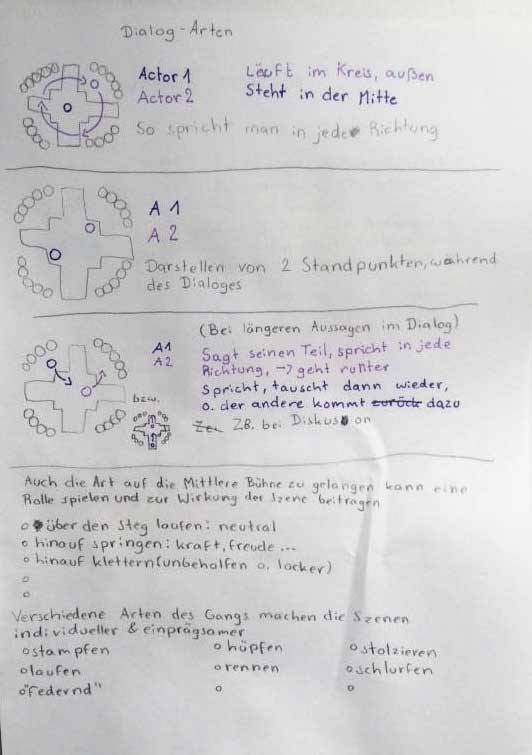 Dialog-Arten
Actor 1 Läuft im Kreis, außen
Actor 2 Steht in der Mitte
So spricht man in jede Richtung
A 1
A 2
Darstellen von 2 Standpunkten, während
des Dialoges
(Bei längeren Aussagen im Dialog)
A1 Sagt seinen Teil, spricht in jede
A2 Richtung, -> geht runter
Spricht, tauscht dann wieder,
bzw. o. der andere kommt zurück dazu
ZB. bei Diskussion
Auch die Art auf die Mittlere Bühne zu gelangen kann eine
Rolle spielen und zur Wirkung der Szene beitragen
o über den Steg laufen: neutral
o hinauf springen: kraft, freude ...
o hinauf klettern (unbeholfen o. locker)
o
o
Verschiedene Arten des Gangs machen die Szenen
individueller & einprägsamer
o stampfen o hüpfen o stolzieren
o laufen o rennen o schlurfen
o "federnd" o o